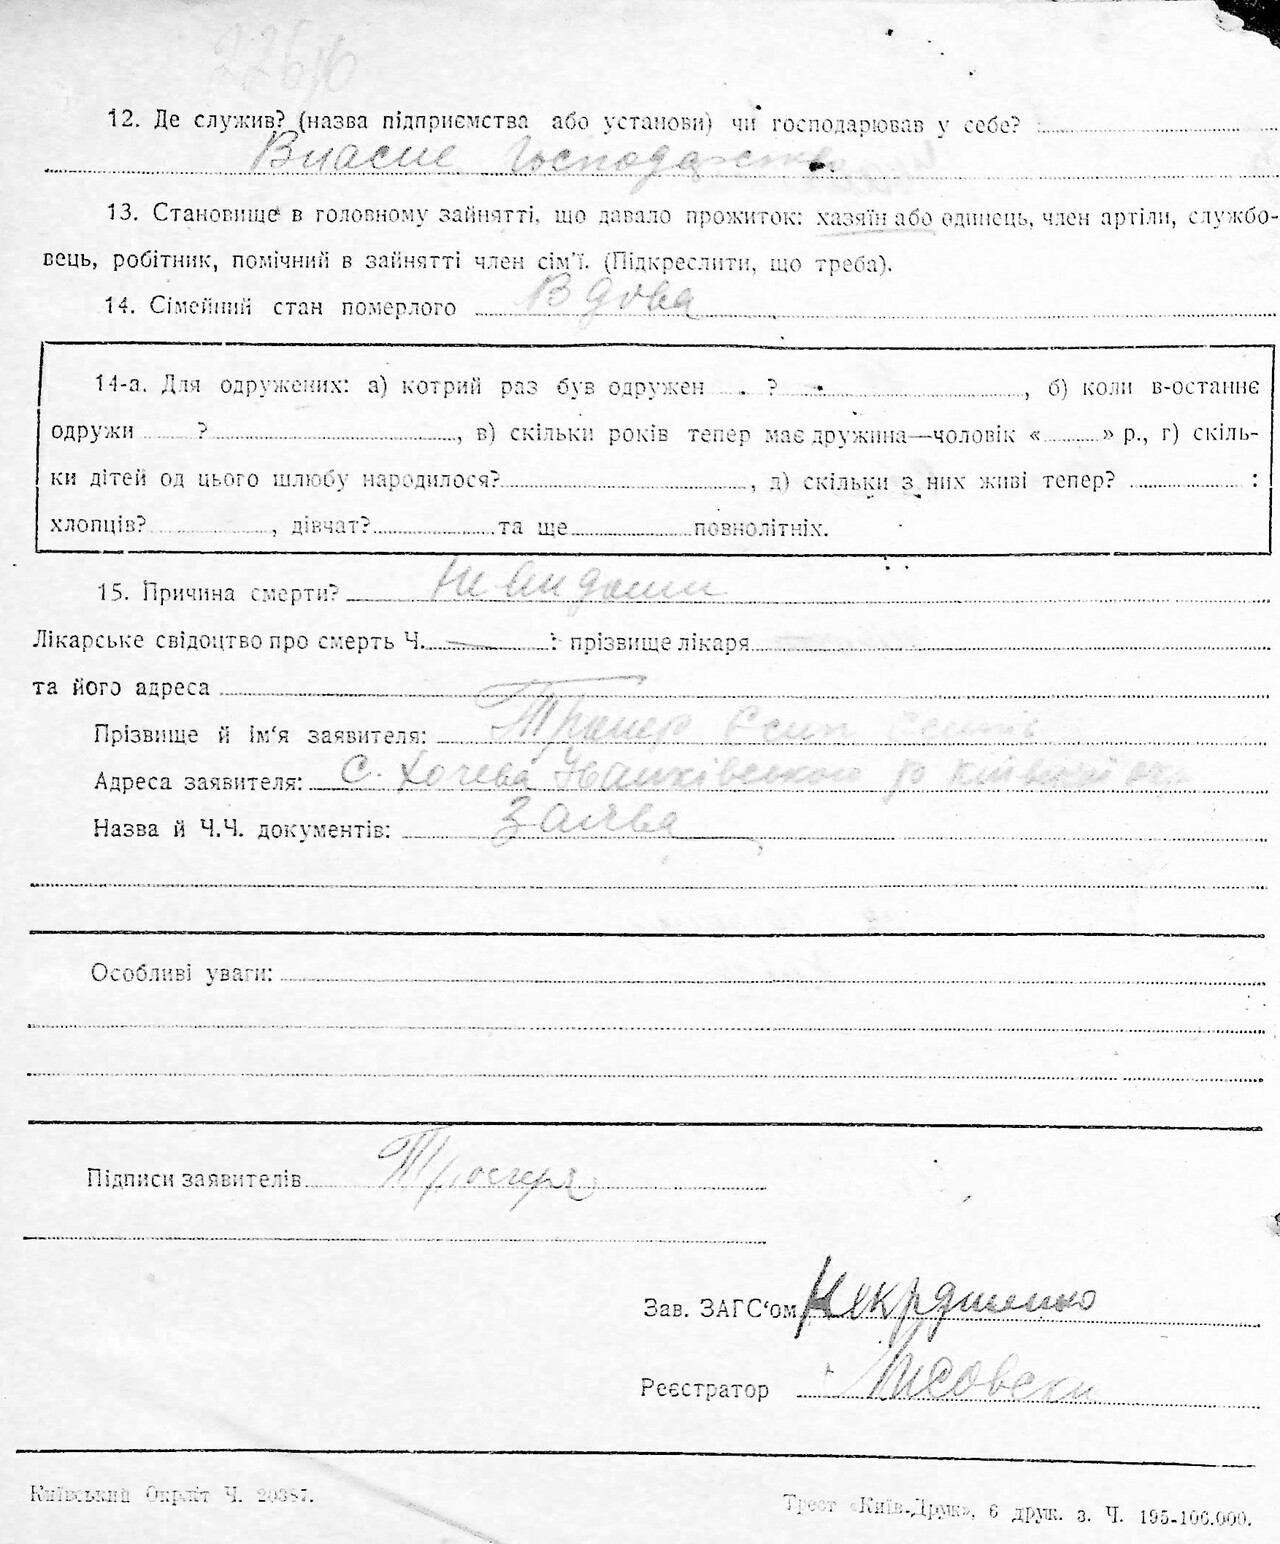 12. Де служив? (назва підприємства або установи) чи господарював у себе?
Власне господарство
13. Становище в головному зайнятті, що давало прожиток: хазяїн або одинець, член артіли, службо-
вець, робітник, помічний в зайнятті член сім'ї. (Підкреслити, що треба).
14. Сімейний стан померлого Вдова
14-а. Для одружених: а) котрий раз був одружен ? , б) коли в-останнє
одружи ? , в) скільки років тепер має дружина—чоловік « » р., г) скіль-
ки дітей од цього шлюбу народилося? , д) скільки з них живі тепер? :
хлопців? , дівчат? та ще повнолітніх.
15. Причина смерти?
Лікарське свідоцтво про смерть Ч. : прізвище лікаря
та його адреса
Прізвище й ім'я заявителя: Єсип
Адреса заявителя: с. Хочева Іванківського р.
Назва й Ч.Ч. документів: Заява
Особливі уваги:
Підписи заявителів
Зав. ЗАГС'ом
Реєстратор Лисовски
Київський Окрліт Ч. 20387.
Трест «Київ-Друк», 6 друк. з. Ч. 195-100.000.